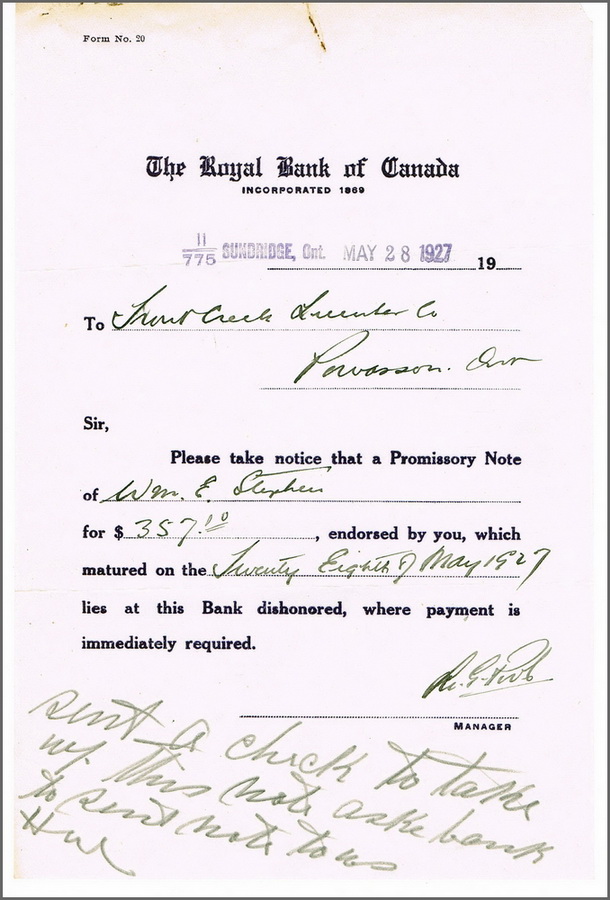 Form No. 20
The Royal Bank of Canada
INCORPORATED 1869
11
775 SUNDRIDGE, Ont. MAY 28 1927 19
To Trout Creek Lumber Co
Powasson. Ont
Sir,
Please take notice that a Promissory Note
of Wm. E. Stephen
for $ 357.10, endorsed by you, which
matured on the Twenty Eighth of May 1927
lies at this Bank dishonored, where payment is
immediately required.
MANAGER
sent a check to take
up this note aske bank
to sent note to us